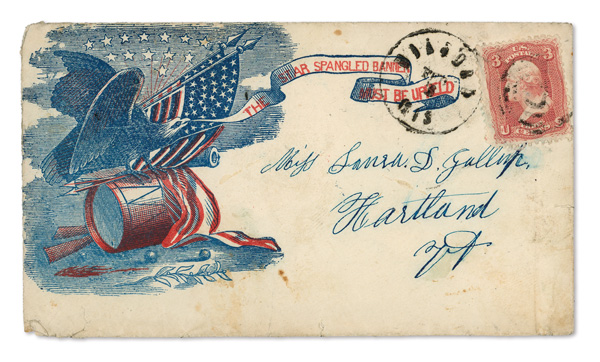 THE STAR SPANGLED BANNER
MUST BE UPHEL'D
3 U.S. 3
CENTS
Miss Laura D. Gallup,
Hartland
Vt